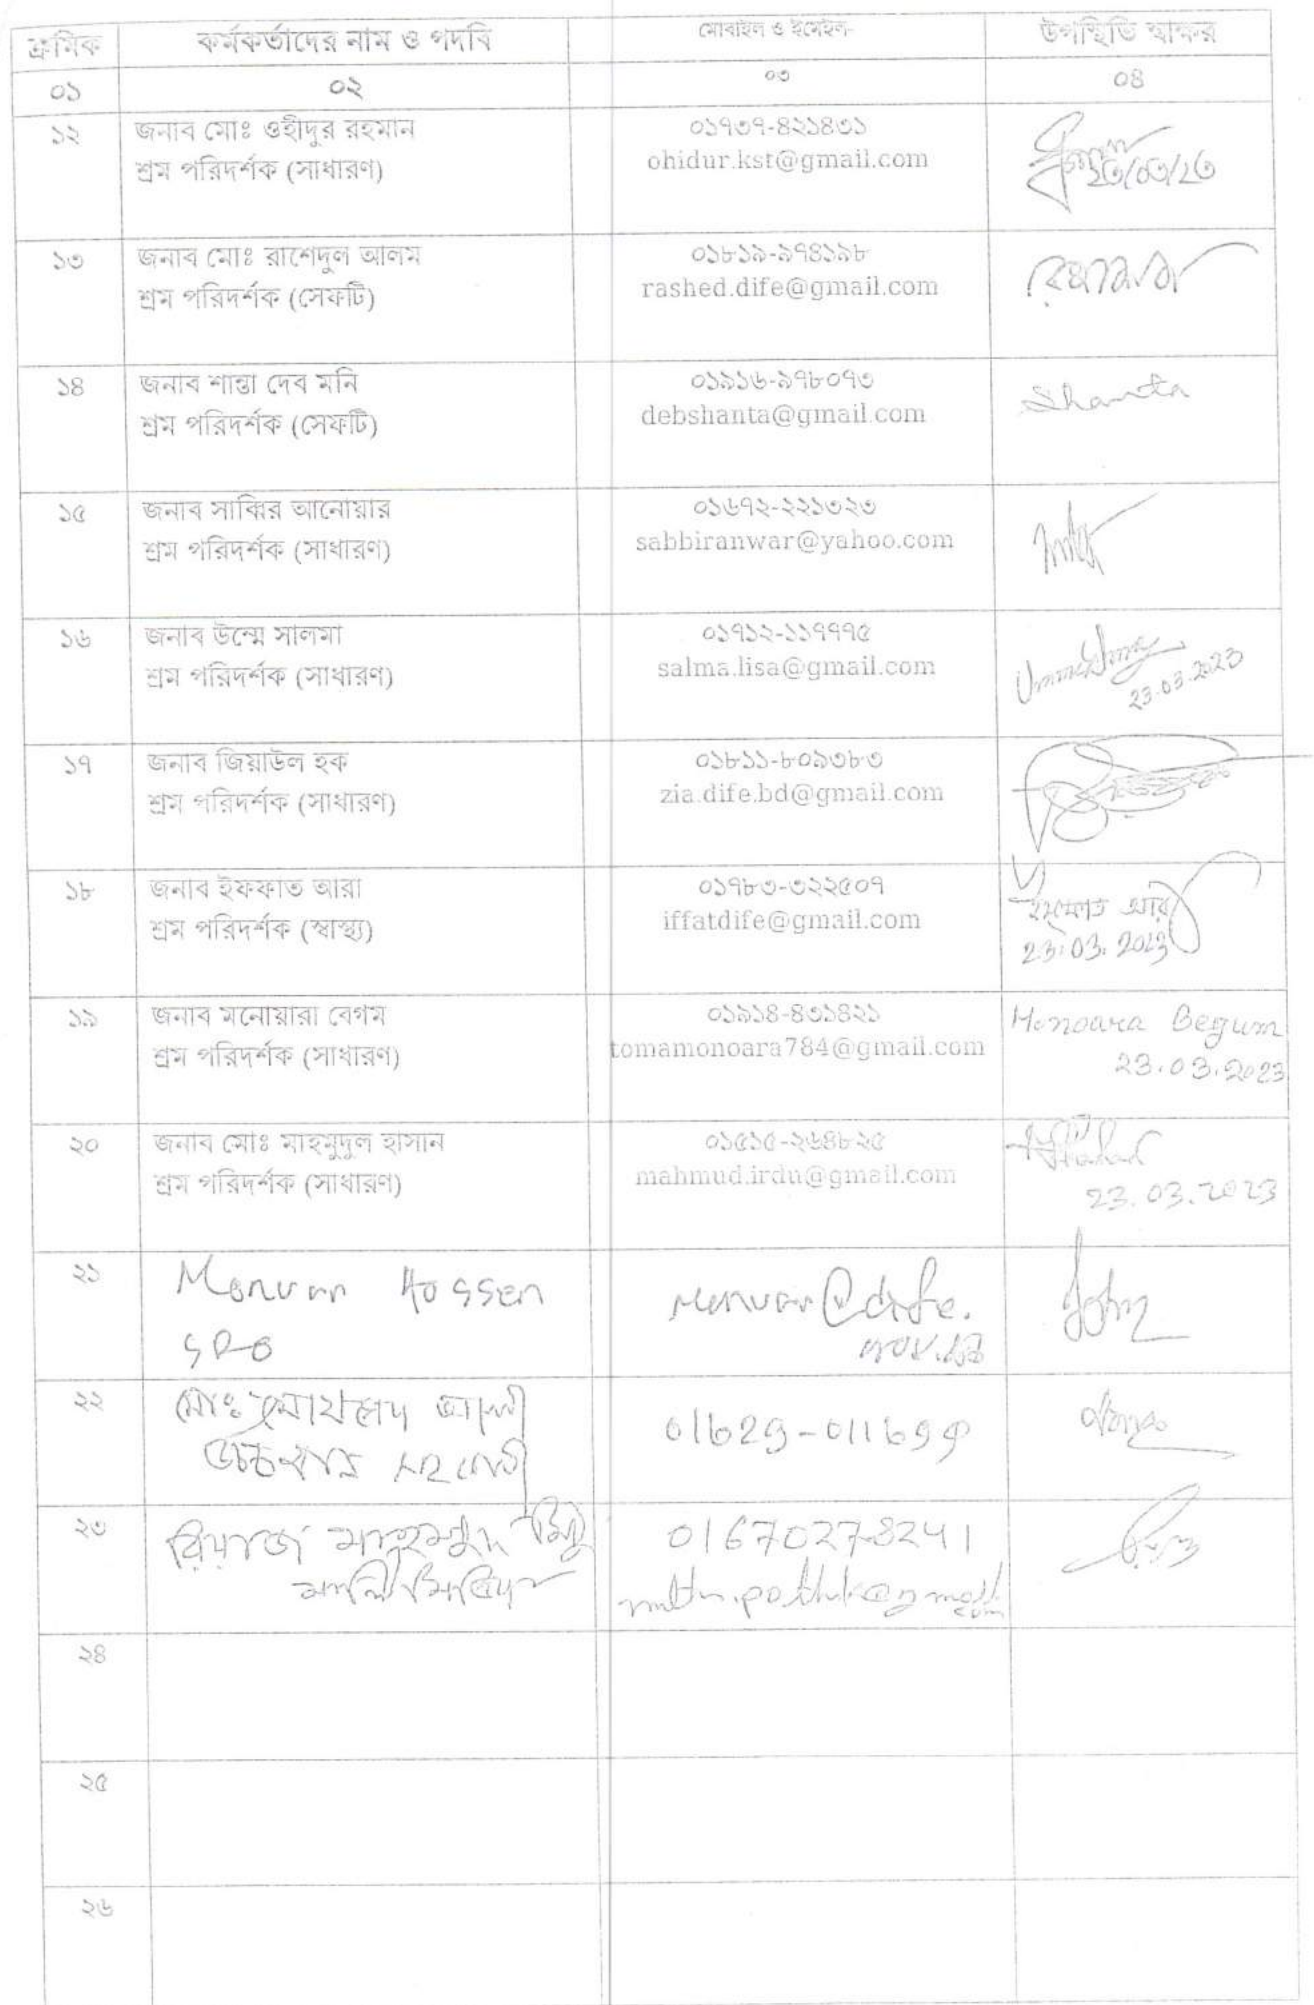 ক্রমিক
কর্মকর্তাদের নাম ও পদবি
মোবাইল ও ইমেইল-
উপস্থিতি স্বাক্ষর
০১
০২
০৩
০৪
১২
জনাব মোঃ ওহীদুর রহমান
শ্রম পরিদর্শক (সাধারণ)
০১৭৩৭-৪২১৪৩১
ohidur.kst@gmail.com
২৩/০৩/২৩
১৩
জনাব মোঃ রাশেদুল আলম
শ্রম পরিদর্শক (সেফটি)
০১৮১৯-৯৭৪১৯৮
rashed.dife@gmail.com
১৪
জনাব শান্তা দেব মনি
শ্রম পরিদর্শক (সেফটি)
০১৯১৬-৯৭৮০৭৩
debshanta@gmail.com
Shanta
১৫
জনাব সাব্বির আনোয়ার
শ্রম পরিদর্শক (সাধারণ)
০১৬৭২-২২১৩২৩
sabbiranwar@yahoo.com
১৬
জনাব উম্মে সালমা
শ্রম পরিদর্শক (সাধারণ)
০১৭১২-১১৭৭৭৫
salma.lisa@gmail.com
23.03.2023
১৭
জনাব জিয়াউল হক
শ্রম পরিদর্শক (সাধারণ)
০১৮১১-৮০৯৩৮৩
zia.dife.bd@gmail.com
১৮
জনাব ইফফাত আরা
শ্রম পরিদর্শক (স্বাস্থ্য)
০১৭৮৩-৩২২৫০৭
iffatdife@gmail.com
ইফফাত আরা
23.03.2023
১৯
জনাব মনোয়ারা বেগম
শ্রম পরিদর্শক (সাধারণ)
০১৯১৪-৪৩১৪২১
tomamonoara784@gmail.com
Monoara Begum
23.03.2023
২০
জনাব মোঃ মাহমুদুল হাসান
শ্রম পরিদর্শক (সাধারণ)
০১৫১৫-২৬৪৮২৫
mahmud.irdu@gmail.com
23.03.2023
২১
Hossen
২২
মোঃ
২৩
রিয়াজ মাহমুদ
01670278241
২৪
২৫
২৬